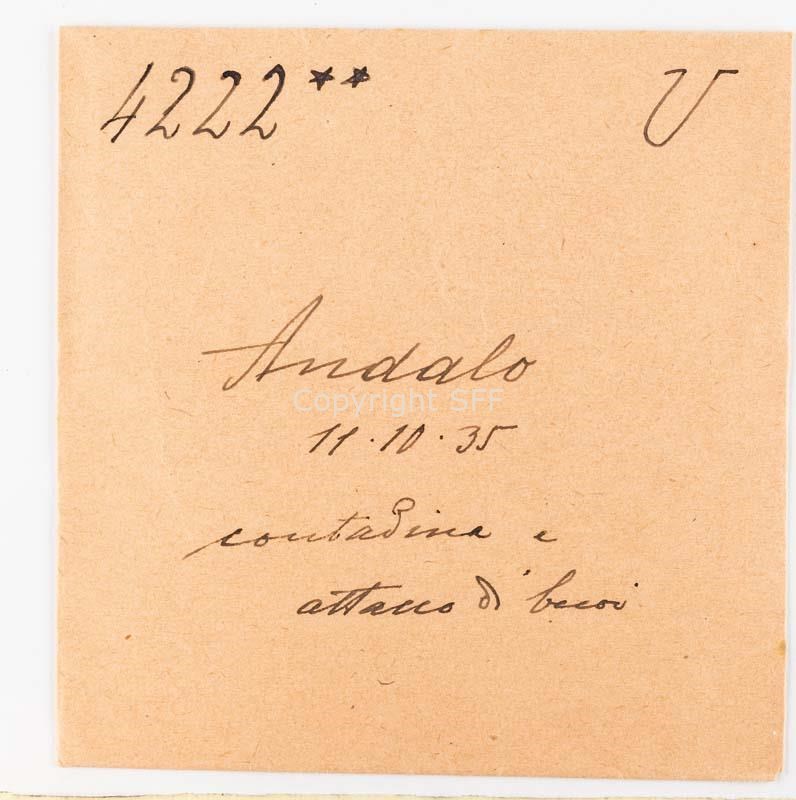 4222** U
Andalo
Copyright SFF
11.10.35
contadina e
attacco di buoi